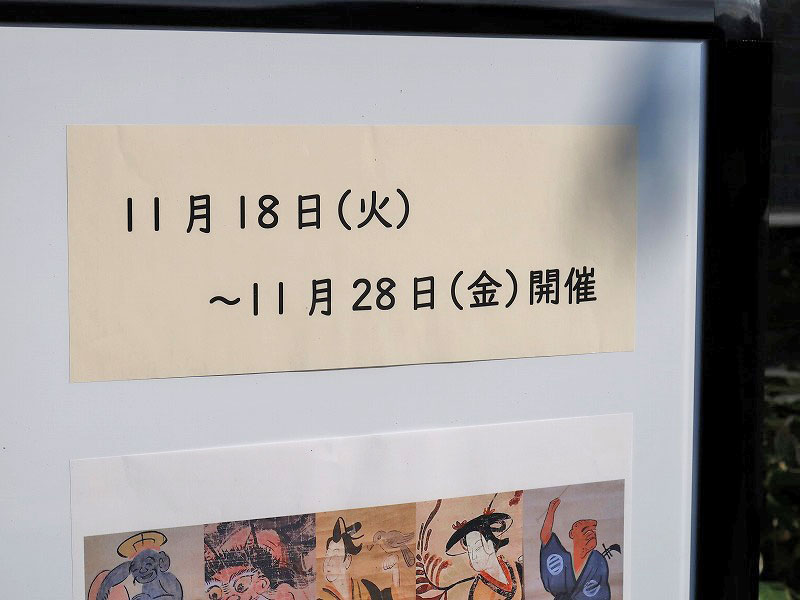 11月18日(火)
～11月28日(金)開催